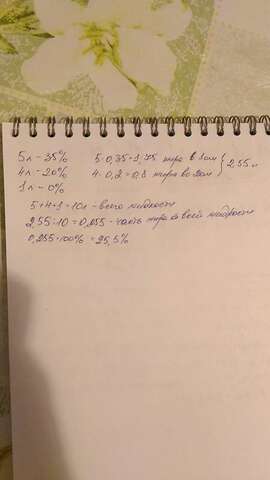 5л - 35% 5·0,35=1,75 жира в 1ом
4л - 20% 4·0,2=0,8 жира во 2ом } 2,55 л
1л - 0%
5+4+1=10л - всего жидкости
2,55:10=0,255 - часть жира во всей жидкости
0,255·100%=25,5%